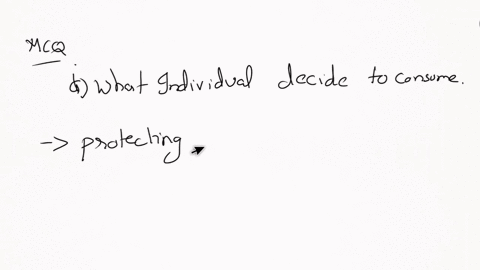 MCQ.
d) What Individual decide to consume.
-> protecting